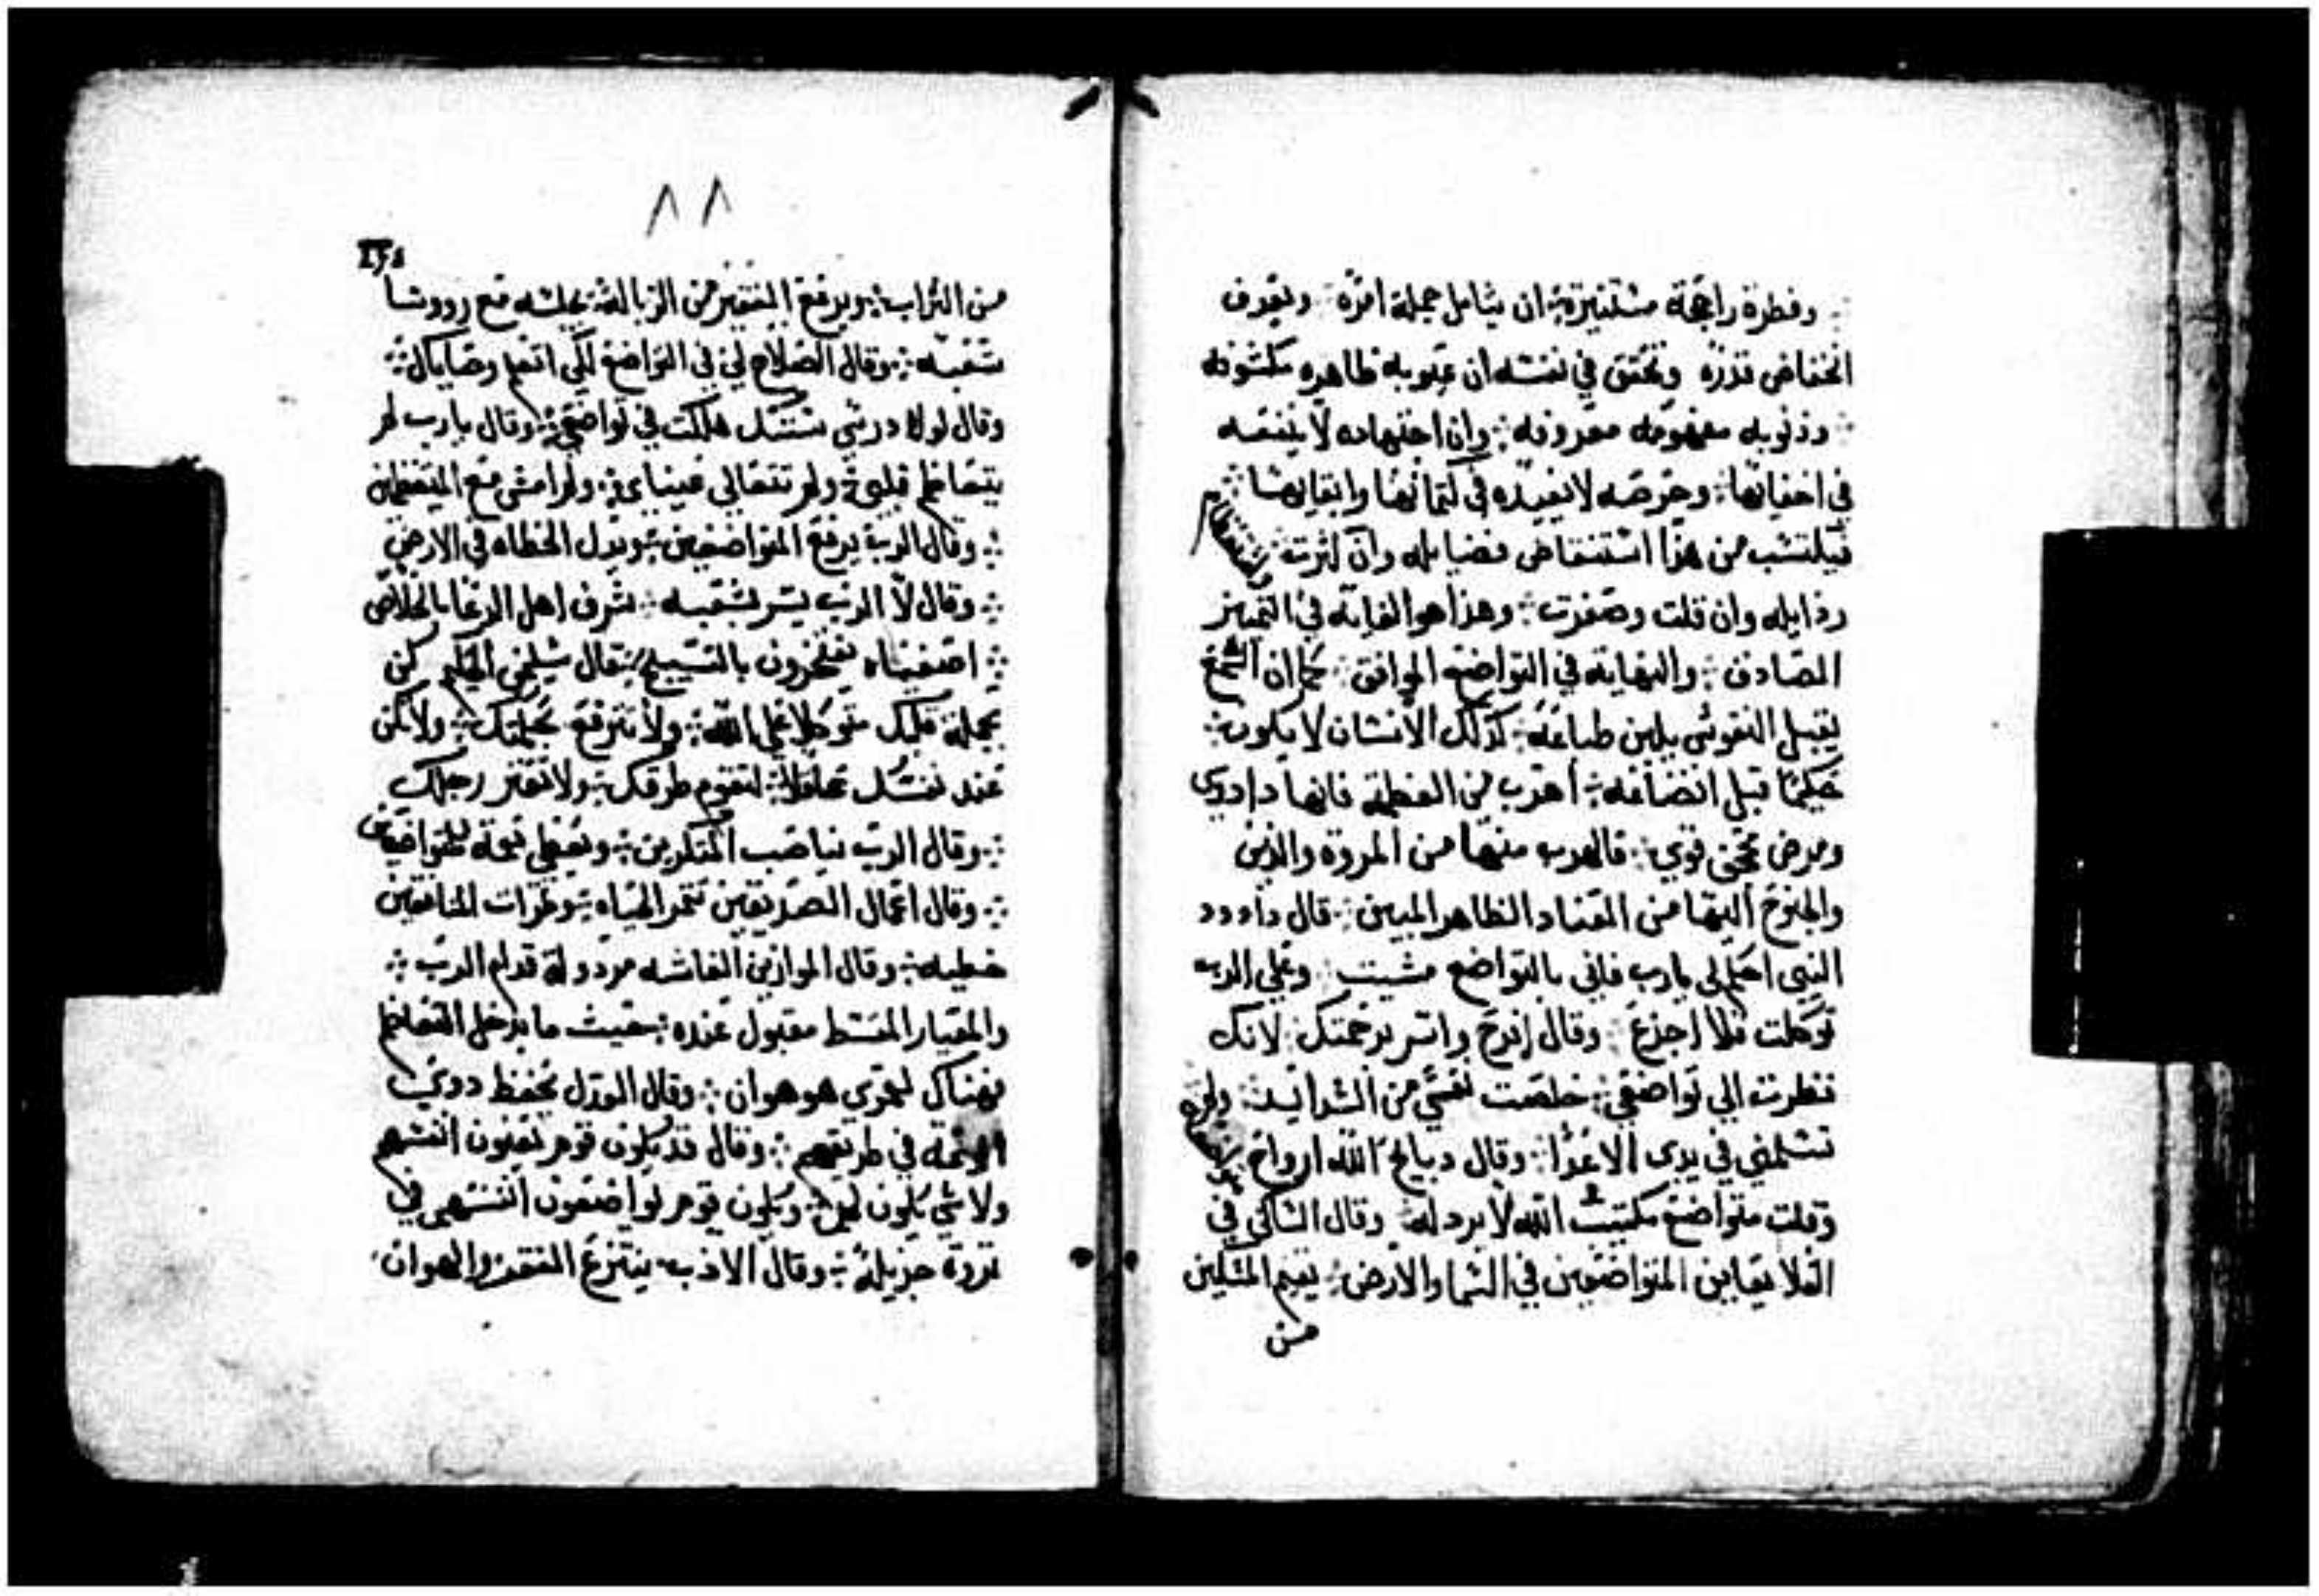 وفطرة راجحة مستنيرة ان يتامل جملة امره ويعرف
انخفاض قدره وتحقق في نفسه ان عيوبه ظاهره مكشوفه
وذنوبه مفهومه معروفه وان اجتهاده لا ينفعه
في اخفايها وحرصه لا يفيده في كتمانها وابقايها
فيكتسب من هذا استنقاص فضايله وان كثرت واستعظام
رذايله وان قلت وصغرت وهذا هو الغاية في التمييز
الصادق والنهاية في التواضع الموافق كما ان الشمع
يقبل النقوش بلين طباعه كذلك الانسان لا يكون
حكيما قبل اتضاعه اهرب من العظمة فانها دا ردي
ومرض قوي فالهرب منها من المروة والدين
والجنوح اليها من العناد الظاهر المبين قال داوود
النبي احكم لي يارب فاني بالتواضع مشيت وعلى الرب
توكلت فلا اجزع وقال افرح واسر برحمتك لانك
نظرت الي تواضعي خلصت نفسي من الشدايد ولم
تسلمني في يدى الاعدا وقال دبايح الله ارواح
وقلت متواضع الله لا يرده وقال الساكن في
العلا يعاين المتواضعين في السما والارض يقيم المسكين
من
٨٨
من التراب ويرفع الفقير من الزبالة يجلسه مع رووسا
شعبه وقال الصلاح لي في التواضع لكي اتعلم وصاياك
وقال لولا درسي سننك هلكت في تواضعي وقال يارب لم
يتعاظم قلبي ولم تتعالي عيناي ولم امشي مع المتعظمين
وقال الرب يرفع المتواضعين ويذل الخطاه في الارض
وقال لان الرب يسر بشعبه يشرف اهل الدعا بالخلاص
اصفياه يفتخرون بالتسبيح قال سليمن الحكيم كن
بجملة قلبك متوكلا على الله ولا تترفع بحكمتك ولا تكن
عند نفسك عاقلا لتقوم طرقك ولا تعثر رجلك
وقال الرب يناصب المتكبرين ويعطي نعمة للمتواضعين
وقال اعمال الصديقين تثمر الحياه وثمرات المنافقين
خطيه وقال الموازين الغاشه مردولة قدام الرب
والمعيار المقسط مقبول عنده حيث ما يدخل التعاظم
فهناك لعمري هو هوان وقال العدل يحفظ دوي
في طريقهم وقال قد يكون قوم يغنون انفسهم
ولا شي يكون لهم ويكون قوم يواضعون انفسهم في
ثروة جزيلة وقال الادب ينتزع الفقر والهوان